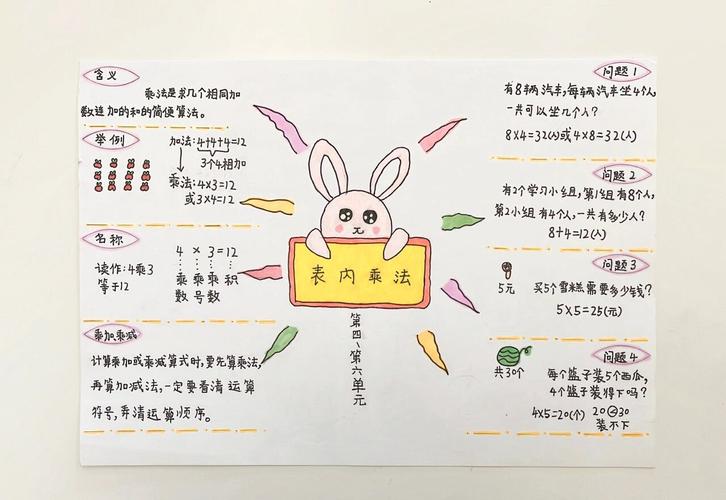 含义
乘法是求几个相同加
数连加的和的简便算法。
举例
加法:4+4+4=12
3个4相加
乘法:4×3=12
或3×4=12
名称
读作:4乘3
等于12
4×3=12
乘乘乘积
数号数
乘加乘减
计算乘加或乘减算式时,要先算乘法,
再算加减法,一定要看清运算
符号,弄清运算顺序。
表内乘法
第四、第六单元
问题1
有8辆汽车,每辆汽车坐4个人,
一共可以坐几个人?
8×4=32(人)或4×8=32(人)
问题2
有2个学习小组,第1组有8个人,
第2小组有4个人,一共有多少人?
8+4=12(人)
问题3
5元
买5个雪糕需要多少钱?
5×5=25(元)
问题4
共30个
每个篮子装5个西瓜,
4个篮子装得下吗?
4×5=20(个) 20<30
装不下